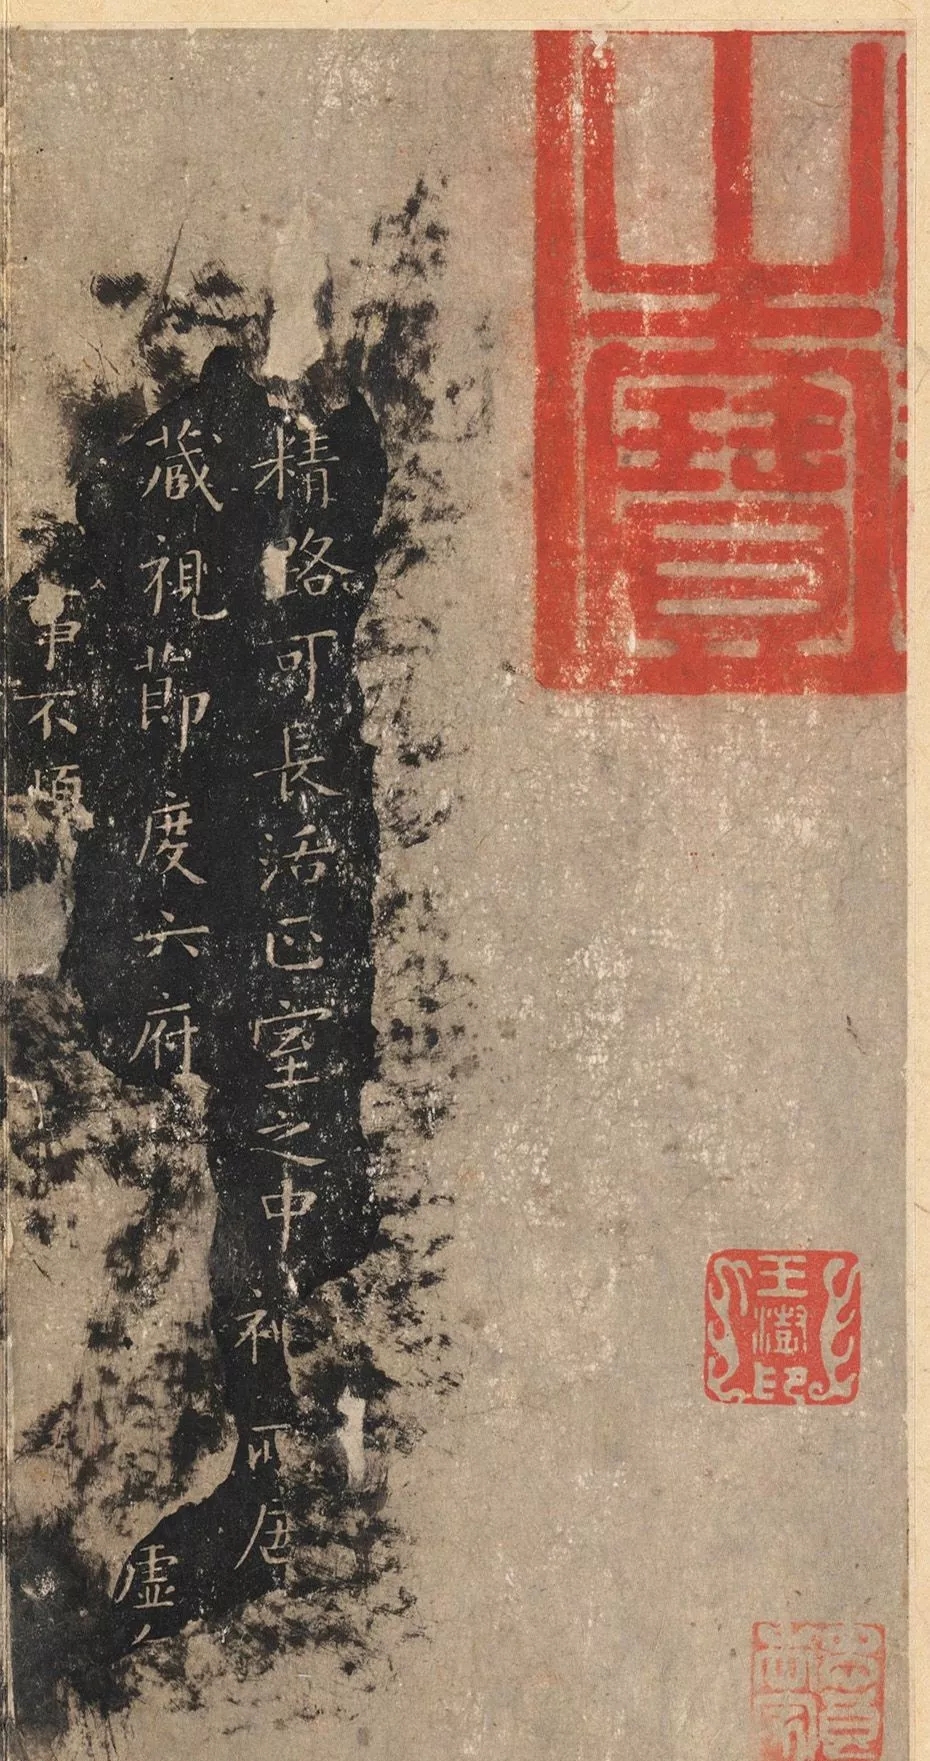 山寶
王澍印
精路可長活正室之中神所居
藏視節度六府
虛
事不煩